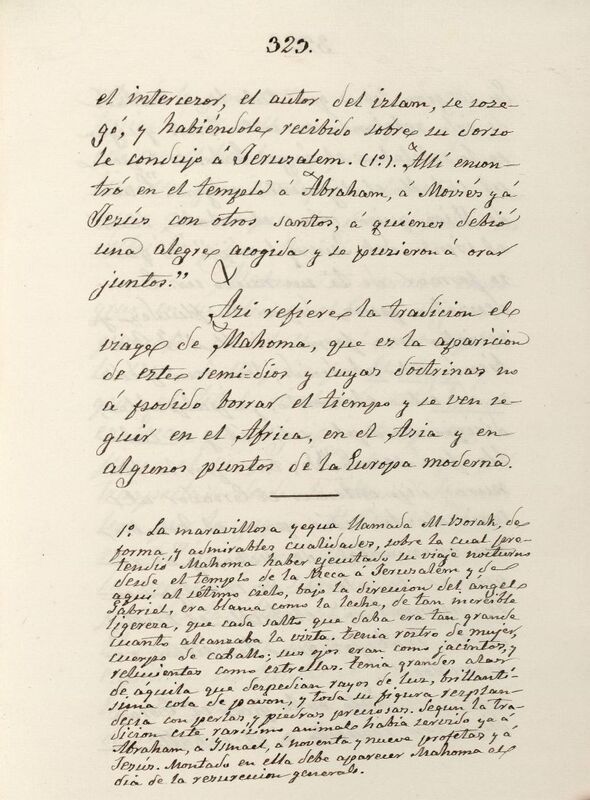 323.
el intercezor, el autor del izlam, se soze-
gó, y habiéndole recibido sobre su dorso
le condujo á Jeruzalem. (1º). Allí encon-
tró en el templo á Abraham, á Moisés y á
Jezús con otros santos, á quienes debió
una alegre acogida y se puzieron á orar
juntos."
Azi refiere la tradicion el
viage de Mahoma, que es la aparicion
de este semi-dios y cuyas doctrinas no
á podido borrar el tiempo y se ven se-
guir en el Africa, en el Azia y en
algunos puntos de la Europa moderna.
1º La maravillosa yegua llamada Al-Borak, de
forma, y admirables cualidades, sobre la cual pre-
tendió Mahoma haber ejecutado su viaje nocturno
desde el templo de la Meca á Jeruzalem y de
aquí al sétimo cielo, bajo la direccion del ángel
Gabriel, era blanca como la leche, de tan increible
ligereza, que cada salto que daba era tan grande
cuanto alcanzaba la vizta. tenia rostro de mujer,
cuerpo de caballo; sus ojos eran como jacintos, y
relucientes como estrellas. tenia grandes alas
de aguila que despedian rayos de luz, brillantí-
sima cola de pavon, y toda su figura resplan-
decia con perlas, y piedras preciosas. Segun la tra-
dicion este rarisimo animal habia servido ya á
Abraham, á Ismael, á noventa y nueve profetas y á
Jezús. Montado en ella debe aparecer Mahoma el
dia de la resureccion general.